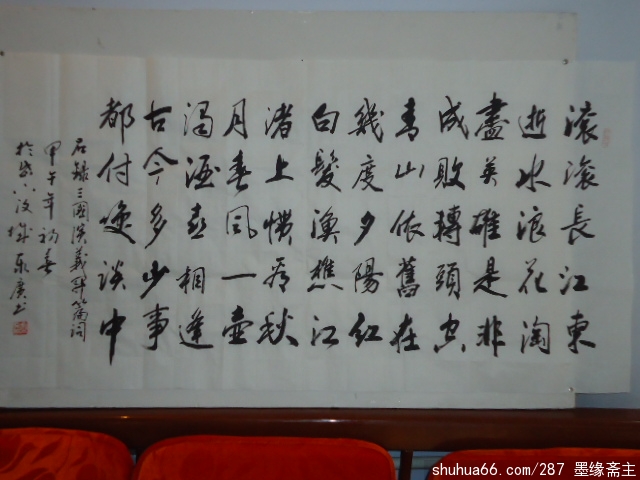 滚滚長江東
逝水浪花淘
盡英雄是非
成敗轉頭空
青山依舊在
幾度夕陽紅
白髮漁樵江
渚上慣看秋
月春風一壺
濁酒喜相逢
古今多少事
都付咲談中
右録三國演義開篇詞
甲午年初春
於岱下汶城
shuhua66.com/287 墨缘斋主